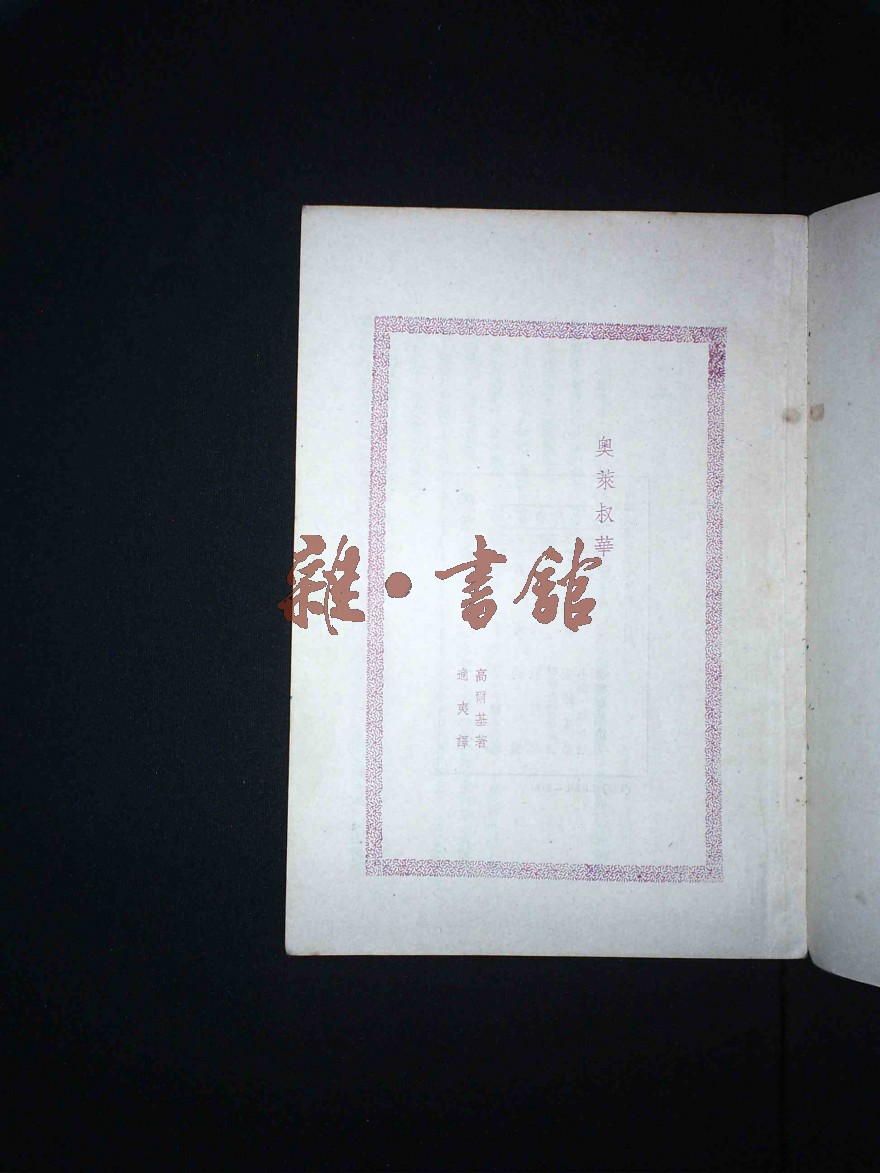 奥萊叔華
高爾基著
適夷譯
雜·書館